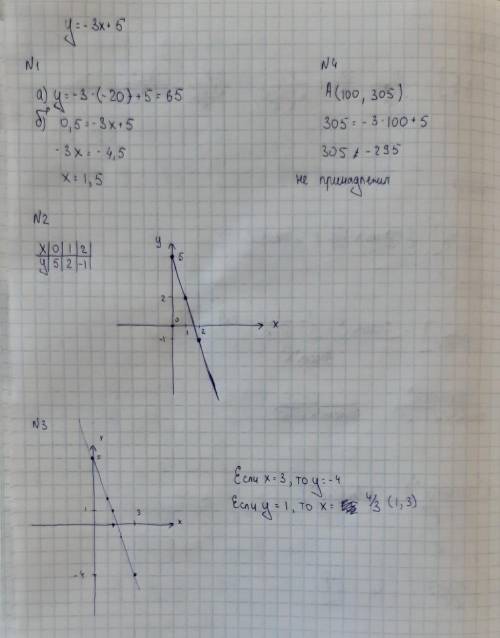 y = -3x + 5
N1
а) y = -3·(-20) + 5 = 65
б) 0,5 = -3x + 5
-3x = -4,5
x = 1,5
N4
A(100, 305)
305 = -3·100 + 5
305 ≠ -295
не принадлежит
N2
x|0|1|2|
y|5|2|-1|
y
5
2
0
1
2
x
-1
N3
y
5
1
3
x
-4
Если x = 3, то y = -4
Если y = 1, то x = 4/3 (1,3)